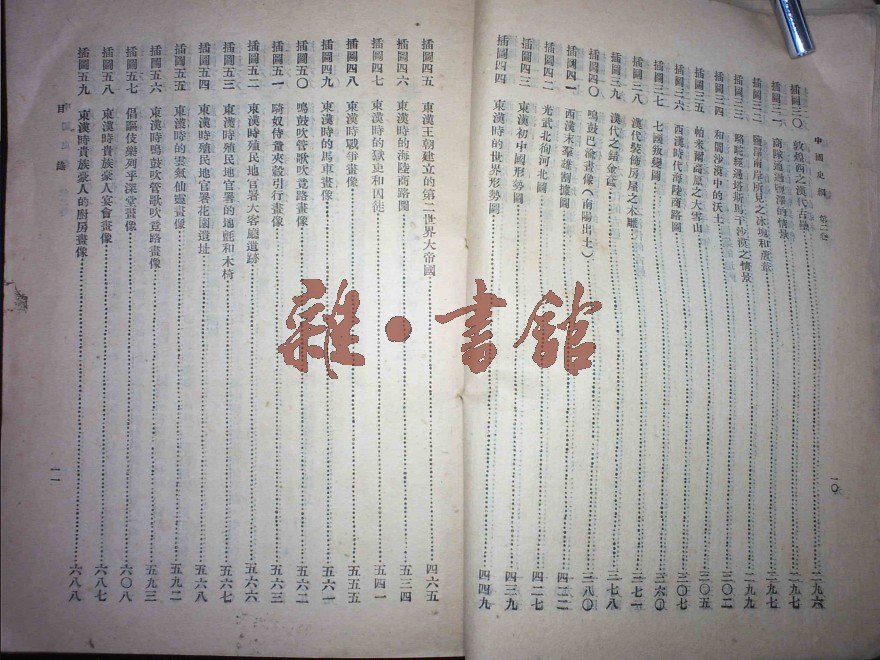 中國史綱 第二卷
一〇
插圖三〇 敦煌西之漢代古壘 二九六
插圖三一 商隊通過鹽澤的情景 二九七
插圖三二 鹽澤兩岸所見之冰塊和蘆葦 二九七
插圖三三 駱駝經過塔斯馬干沙漠之情景 二九九
插圖三四 和闐沙漠中的沃土 三〇二
插圖三五 帕米爾高原之大雪山 三〇五
插圖三六 西漢時代海陸商路圖 三〇七
插圖三七 七國叛變圖 三六〇
插圖三八 漢代裝飾房屋之木雕 三七一
插圖三九 漢代之錯金 三七八
插圖四〇 鳴鼓巴渝畫像(南陽出土) 三八〇
插圖四一 西漢末羣雄割據圖 四二二
插圖四二 光武北徇河北圖 四二七
插圖四三 東漢初中國形勢圖 四三九
插圖四四 東漢時的世界形勢圖 四四九
插圖四五 東漢王朝建立的第二世界大帝國 四六五
插圖四六 東漢時的海陸商路圖 五三四
插圖四七 東漢時的獄吏和囚徒 五四一
插圖四八 東漢時戰爭畫像 五五五
插圖四九 東漢時的馬車畫像 五六一
插圖五〇 鳴鼓吹管歌吹竟路畫像 五六二
插圖五一 騎奴侍童夾轂引行畫像 五六三
插圖五二 東漢時殖民地官署大客廳遺跡 五六六
插圖五三 東漢時殖民地官署的地氈和木椅 五六七
插圖五四 東漢時殖民地官署花園遺址 五六八
插圖五五 東漢時的雲氣仙靈畫像 五九二
插圖五六 東漢時鳴鼓吹管歌吹竟路畫像 五九三
插圖五七 倡謳伎樂列乎深堂畫像 六〇八
插圖五八 東漢時貴族豪人宴會畫像 六八七
插圖五九 東漢時貴族豪人的廚房畫像 六八八
目錄
一一
雜·書館